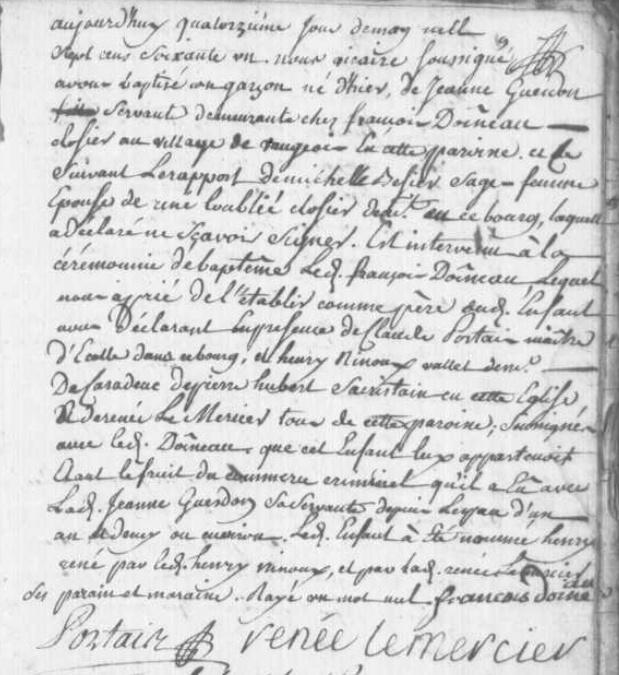 aujourdhuy quatorzième jour demay mill
Sept cens Soixante un nous vicaire soussigné
avons baptisé un garçon né d'hier, de Jeanne Guerdon
Servant demeurante chez françois Doineau
closier au village de en cette paroisse. et ce
Suivant Lerapport demichelle Sage-femme
Epouse de rené closier demt. en ce bourg, laquelle
a Déclaré ne Sçavoir Signer. Est intervenu à la
cérémounie debaptême Led. françois Doineau, Lequel
nous a prié de l'établir comme père dud. Enfant
avec Déclarant Enpresence de Claude Portain maître
D'Ecolle dans cebourg, et henry Ninoux vallet demt.
De depierre hubert Sacristain en cette Eglise
& derenée Le Mercier tous de cette paroisse, Soussignés
avec Led. Doineau, que cet Enfant luy appartenoit
Etant le fruit du commerce criminel qu'il a Eû avec
Lad. Jeanne Guerdon Saservante depuis Lespau d'un
an & demy ou environ. Led. Enfant à été noummé henry
rené par led. henry ninoux, et par lad. renée Lemercier
Ses parain et maraine. Rayé un mot nul. françois Doine
Portain renée Lemercier